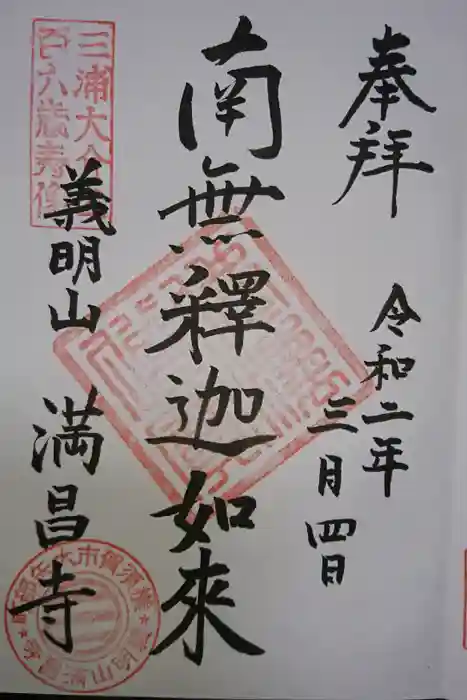 奉拝
令和二年
三月四日
南無釋迦如來
三浦大介
百六歳寿像
義明山 満昌寺